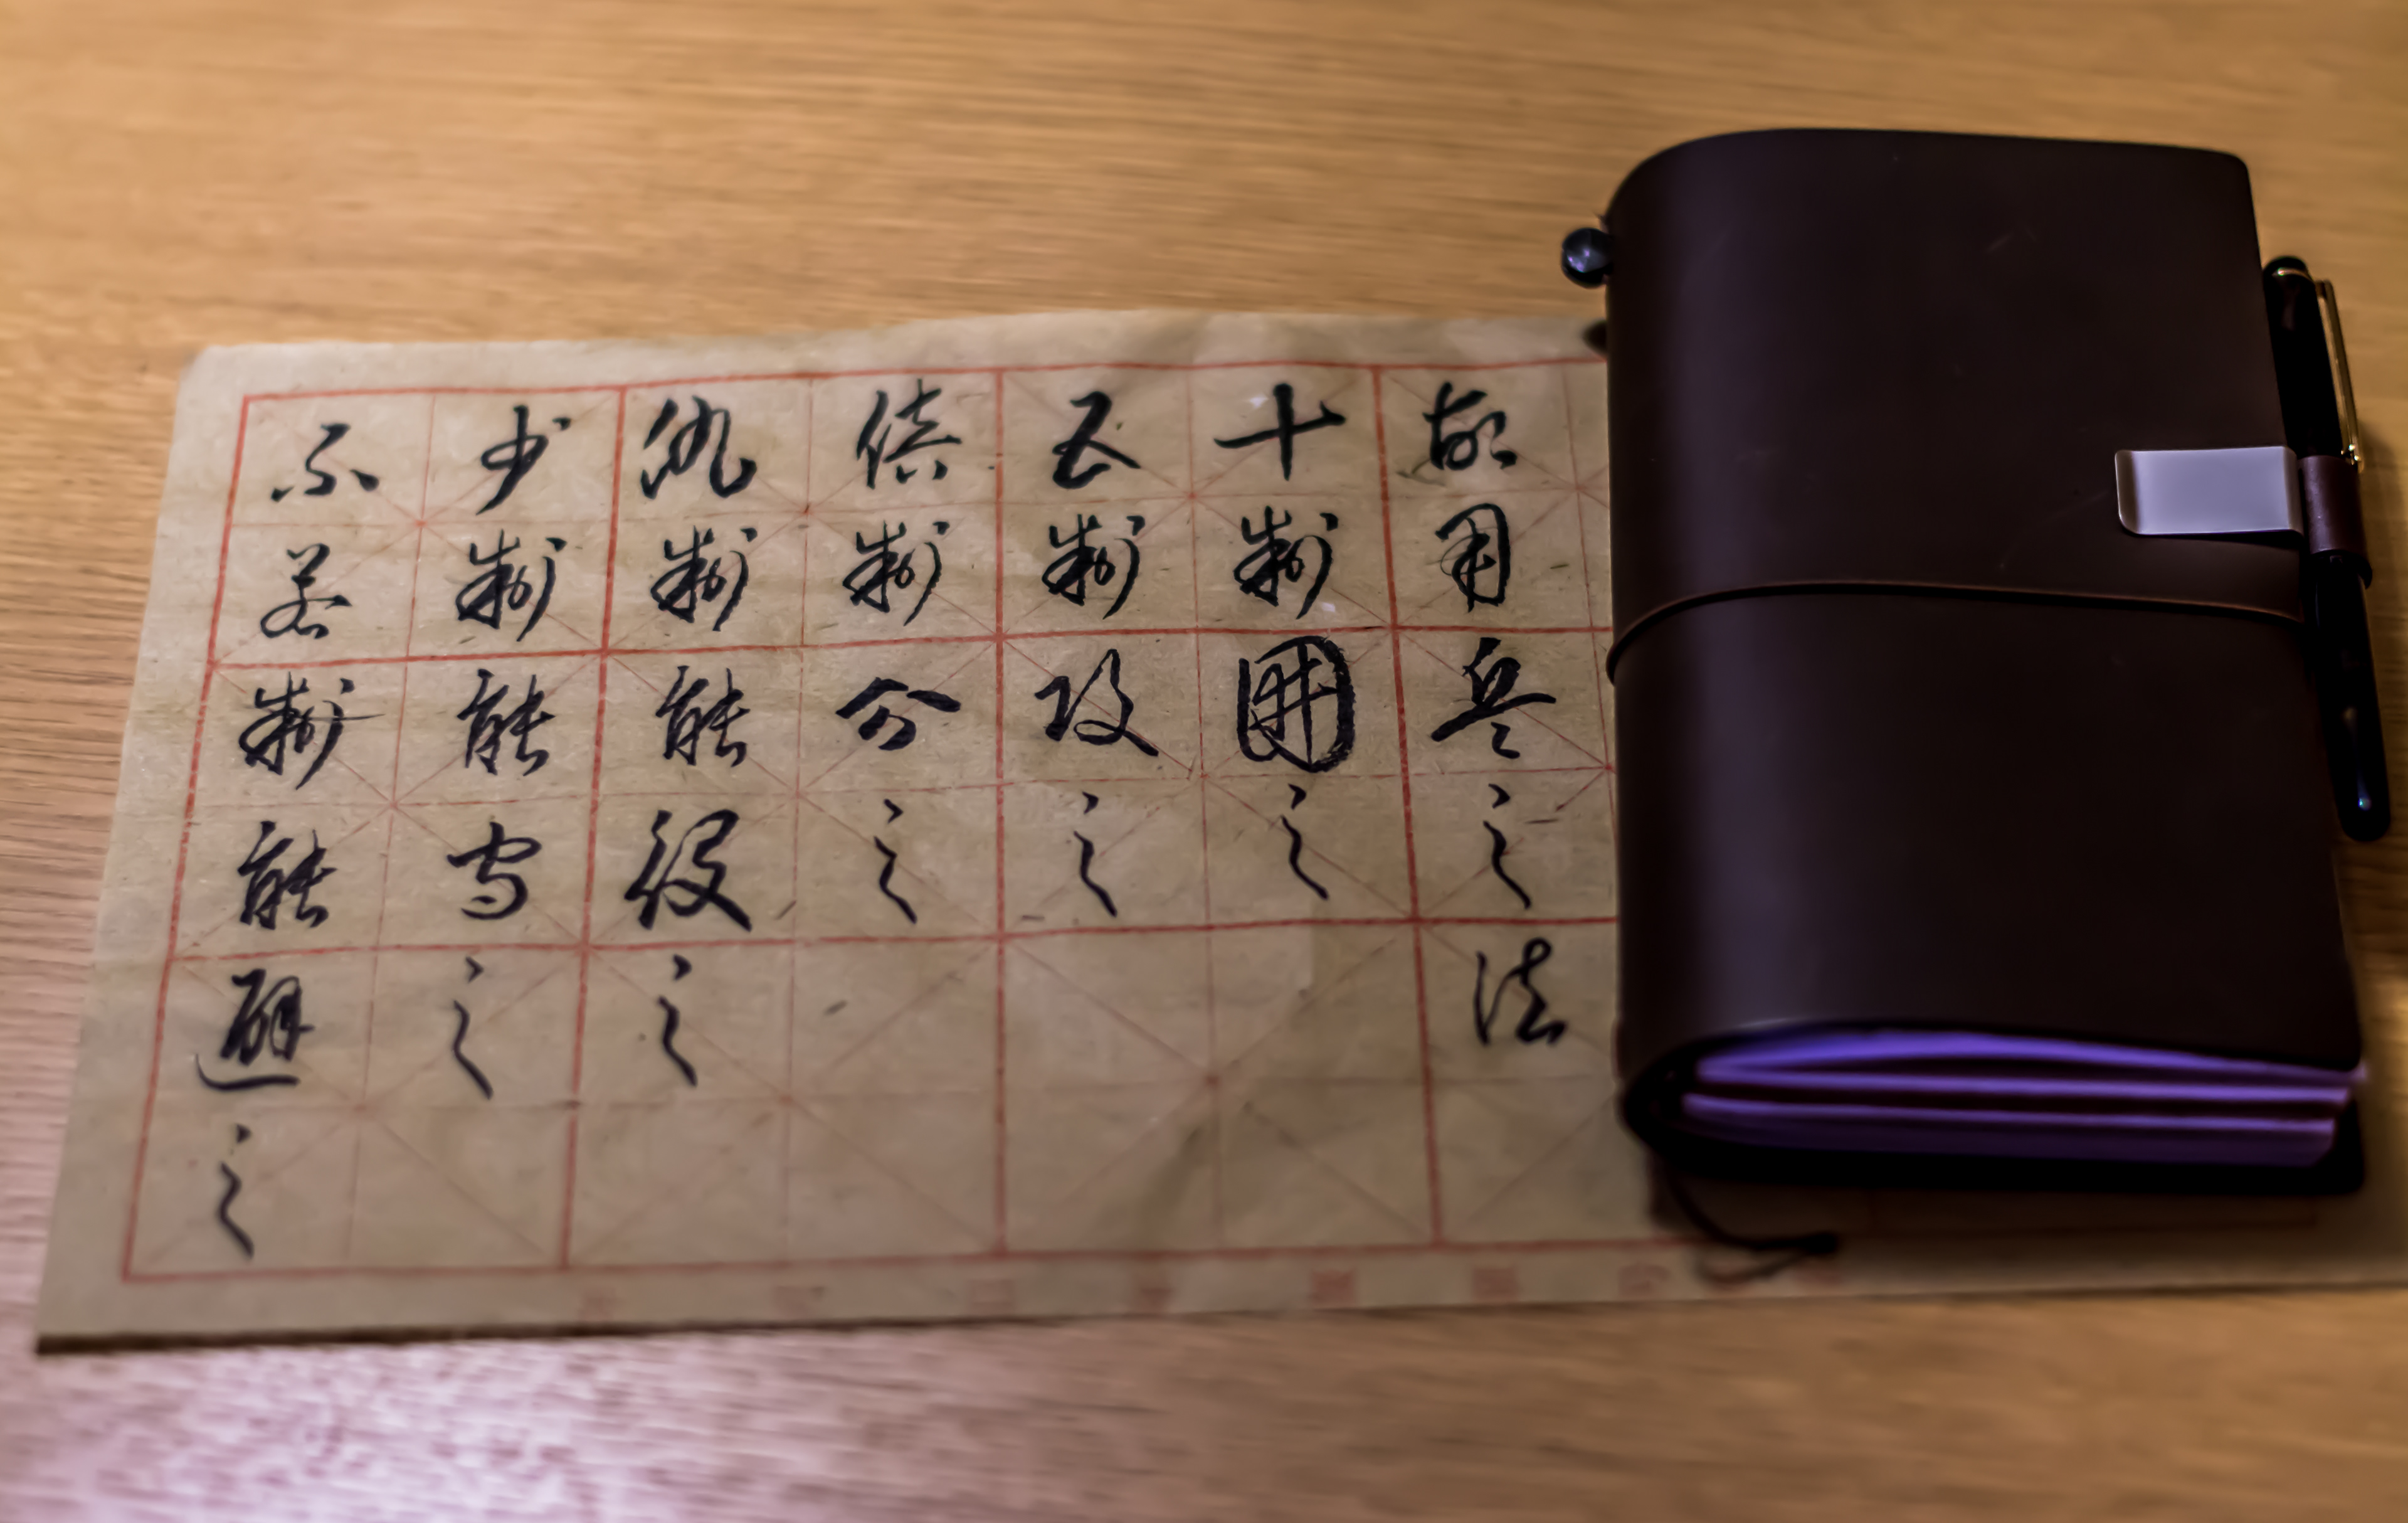 故用兵之法
十則囲之
五則攻之
倍則分之
仇則能役之
少則能守之
不若則能避之